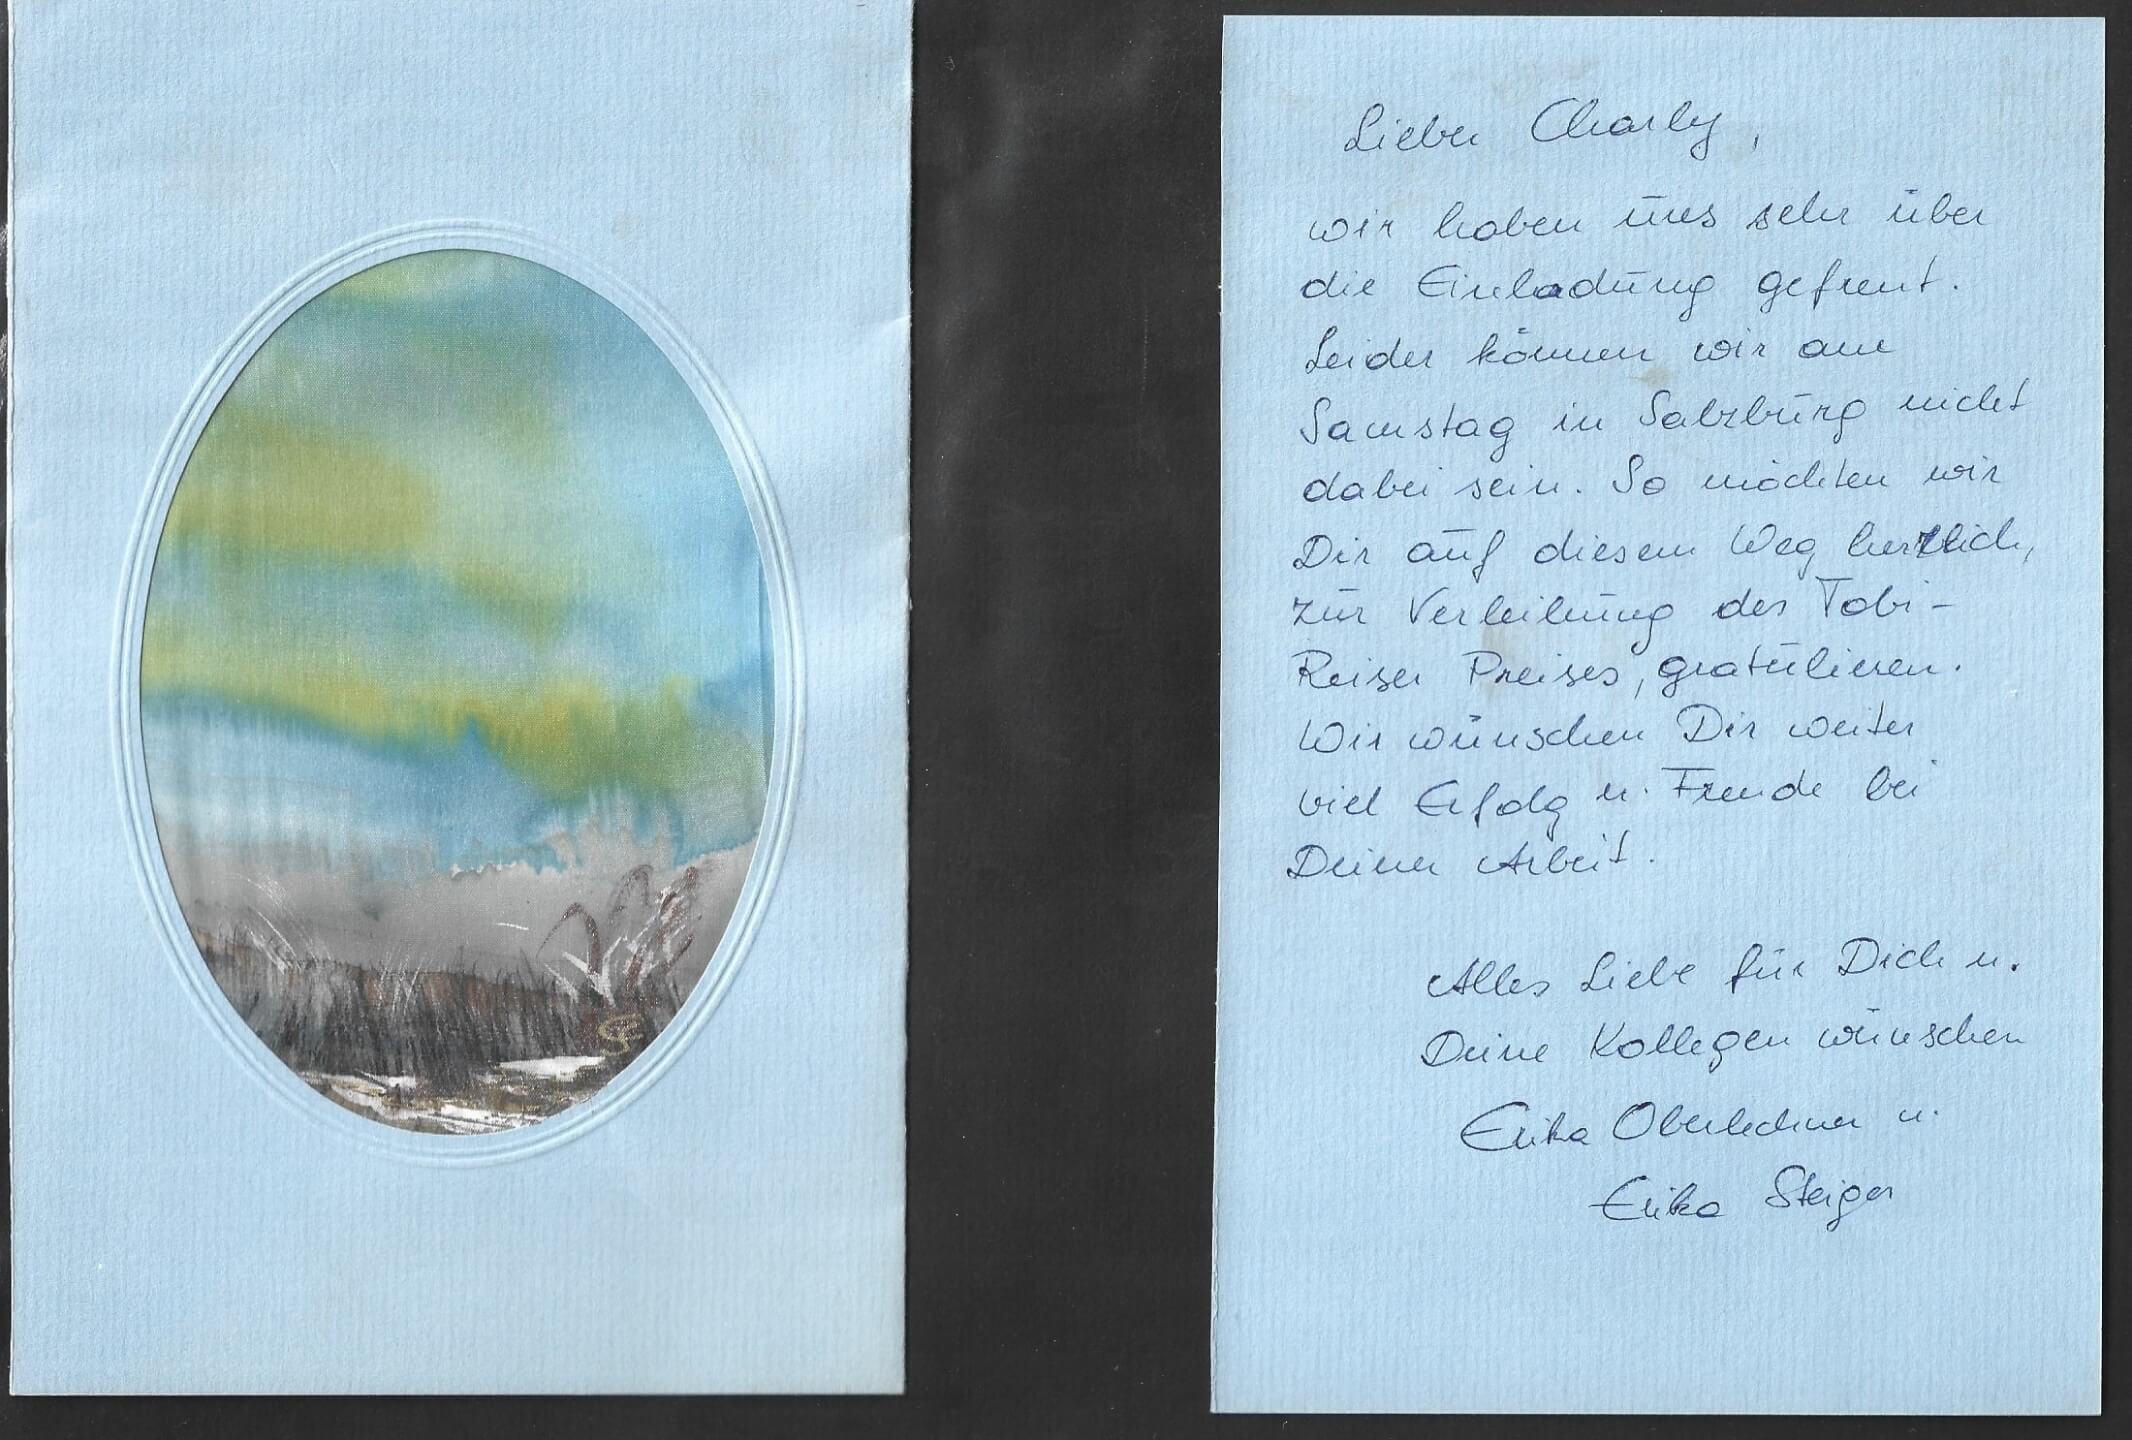 Lieber Charly,
wir haben uns sehr über
die Einladung gefreut.
Leider können wir am
Samstag in Salzburg nicht
dabei sein. So möchten wir
Dir auf diesem Weg herzlich,
zur Verleihung des Tobi-
Reiser Preises, gratulieren.
Wir wünschen Dir weiter
viel Erfolg u. Freude bei
Deiner Arbeit.
Alles Liebe für Dich u.
Deine Kollegen wünschen
Erika Oberlechner u.
Erika Steiger